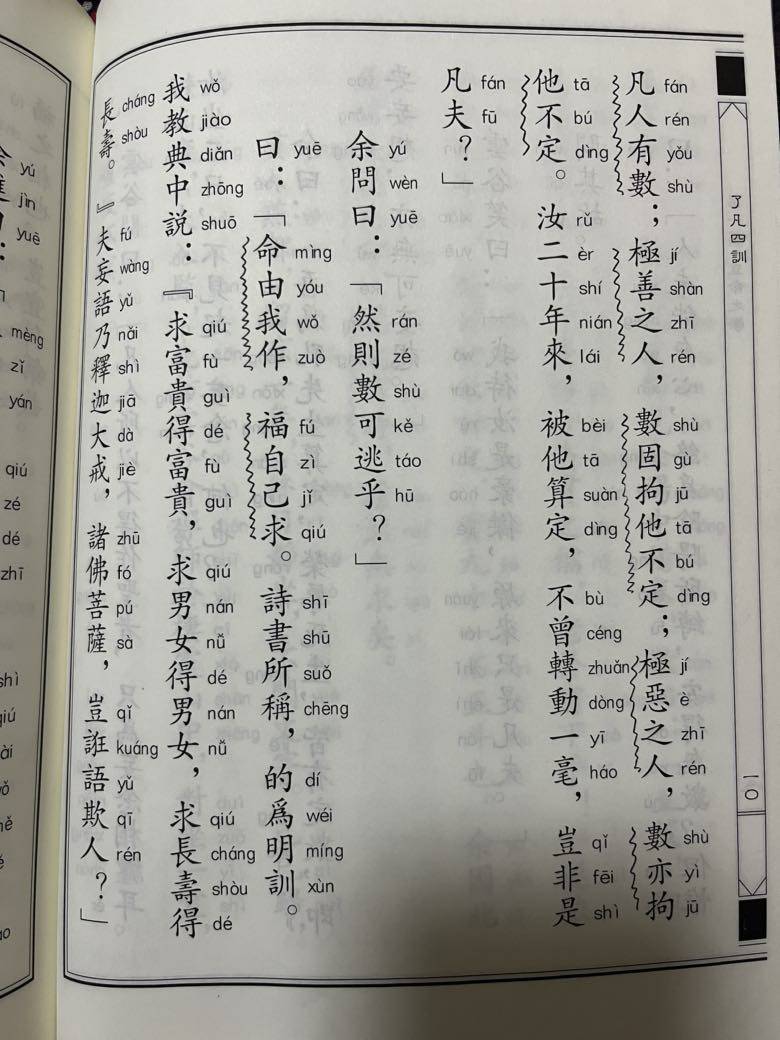 了凡四訓
一〇
凡人有數；極善之人，數固拘他不定；極惡之人，數亦拘
fán rén yǒu shù jí shàn zhī rén shù gù jū tā bú dìng jí è zhī rén shù yì jū
他不定。汝二十年來，被他算定，不曾轉動一毫，豈非是
tā bú dìng rǔ èr shí nián lái bèi tā suàn dìng bù céng zhuǎn dòng yī háo qǐ fēi shì
凡夫？」
fán fū
余問曰：「然則數可逃乎？」
yú wèn yuē rán zé shù kě táo hū
曰：「命由我作，福自己求。詩書所稱，的爲明訓。
yuē mìng yóu wǒ zuò fú zì jǐ qiú shī shū suǒ chēng dí wéi míng xùn
我教典中説：『求富貴得富貴，求男女得男女，求長壽得
wǒ jiào diǎn zhōng shuō qiú fù guì dé fù guì qiú nán nǚ dé nán nǚ qiú cháng shòu dé
長壽。』夫妄語乃釋迦大戒，諸佛菩薩，豈誑語欺人？」
cháng shòu fú wàng yǔ nǎi shì jiā dà jiè zhū fó pú sà qǐ kuáng yǔ qī rén
yú jìn yuē mèng zǐ yán qiú zé dé zhī